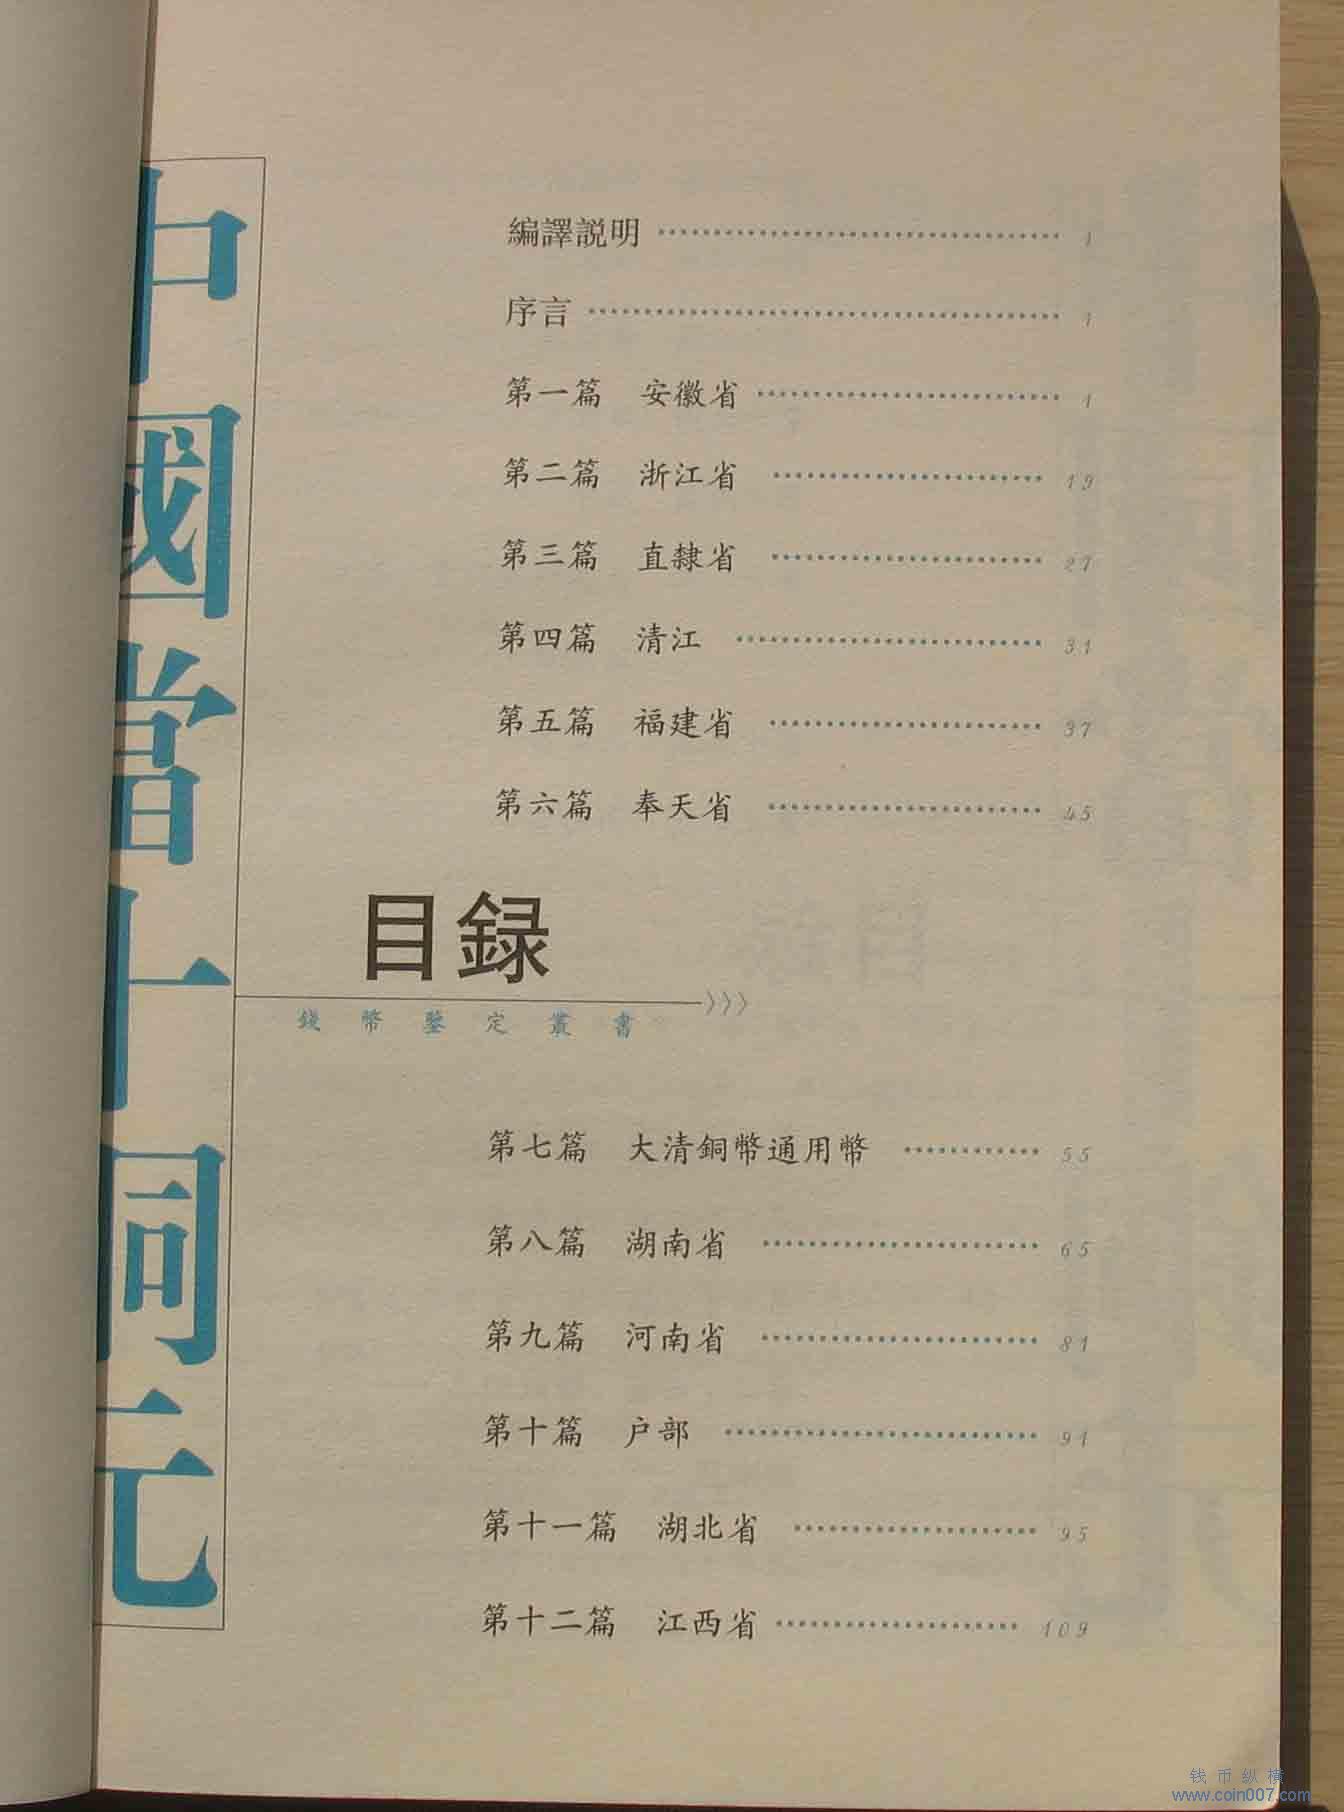 中國當十銅元
編譯説明 1
序言 1
第一篇 安徽省 1
第二篇 浙江省 19
第三篇 直隸省 27
第四篇 清江 31
第五篇 福建省 37
第六篇 奉天省 45
目録
錢幣鑒定叢書
第七篇 大清銅幣通用幣 55
第八篇 湖南省 65
第九篇 河南省 81
第十篇 户部 91
第十一篇 湖北省 95
第十二篇 江西省 109
钱币纵横
www.coin007.com